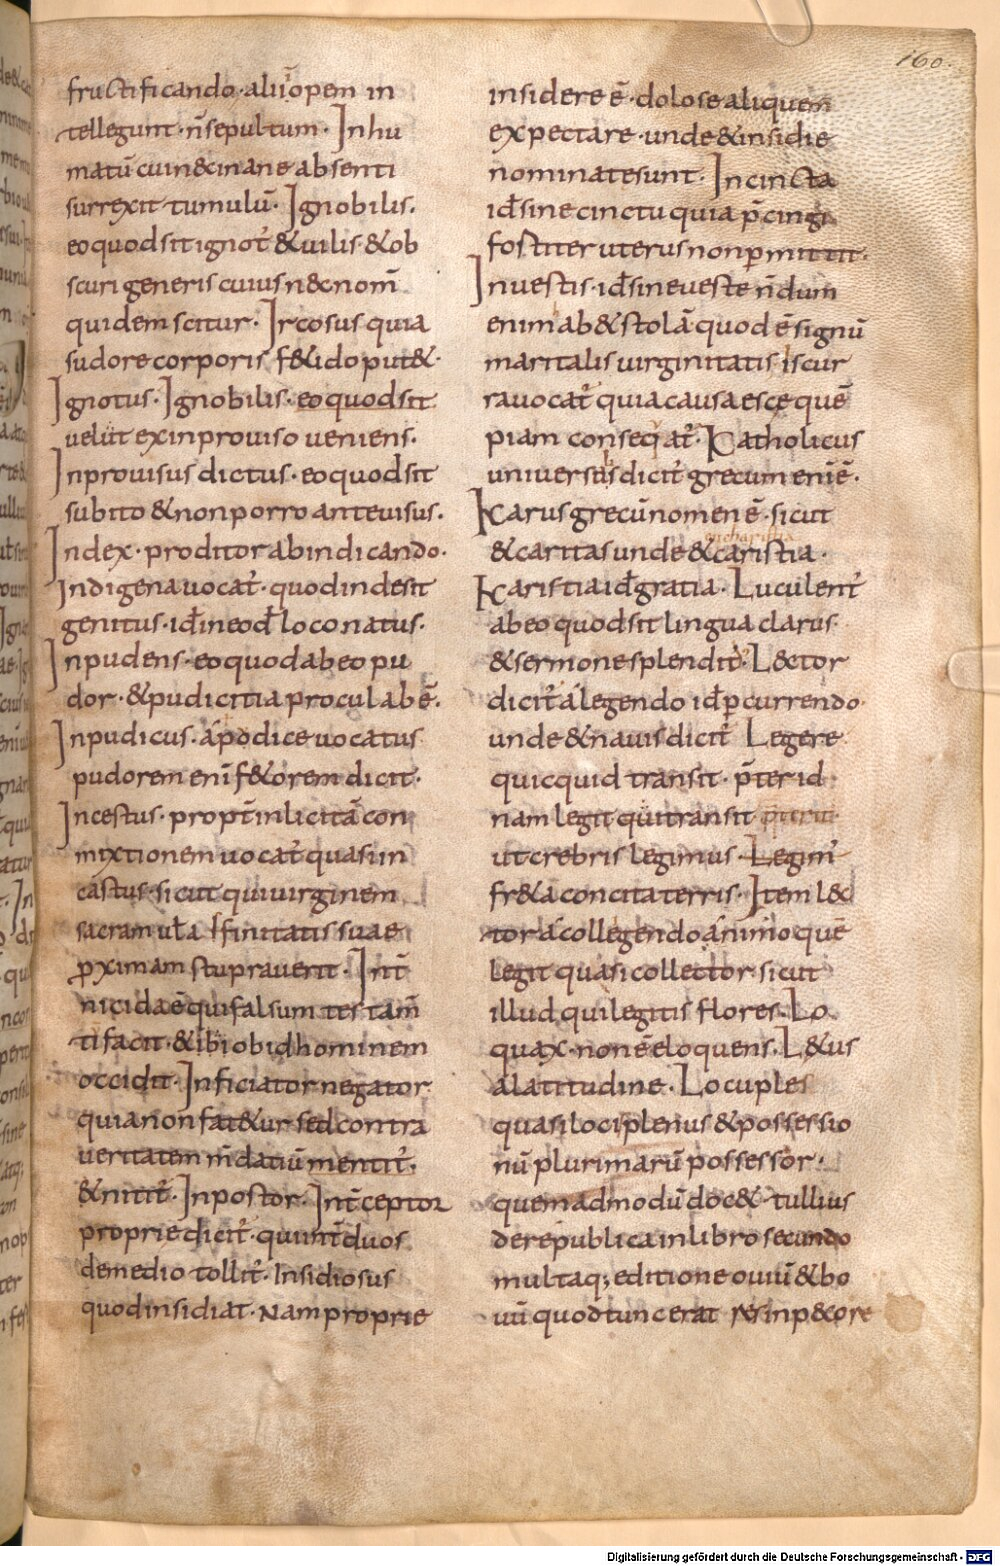 160.
fructificando · alii opem in
tellegunt · n̄ sepultum · Inhu
matū cui n& inane absenti
surrexit tumulū · Ignobilis.
eo quod sit ignot᷑ & uilis · & ob
scuri generis cuius n& nom̄
quidem scitur · Ircosus quia
sudore corporis f&ido put& ·
Ignotus · Ignobilis · eo quod sit
uelut ex inprouiso ueniens ·
Inprouisus dictus · eo quod sit
subito & non porro ante uisus ·
Index · proditor ab indicando ·
Indigena uocat᷑ · quod inde sit
genitus · id ÷ in eod̄ loco natus ·
Inpudens · eo quod ab eo pu
dor · & pudicitia procul abē ·
Inpudicus · a podice uocatus
pudorem eni f&orem dicit ·
Incestus · propt̄ inlicitā con
mixtionem uocat᷑ quasi in
castus · sicut qui uirginem
sacram ul̄ a Ifinitatis suae
p̱ximam stuprauerit · Int̄
nicida ē qui falsum testam̄
ti facit · & ibi ob id hominem
occidit · Inficiator negator
quia non fat&ur sed contra
ueritatem m̄datiū mentit᷑ ·
& nitit᷑ · Inpostor · Int̄ceptor
proprie dicit᷑ · qui int̄ duos
de medio tollit᷑ · Insidiosus
quod insidiat᷑ · Nam proprie
insidere ē · dolose aliquem
expectare · unde & insidie
nominate sunt · Incincta
id̄ sine cinctu quia p̄cingi
fostiter uterus non p̱mittit ·
Inuestis · id̄ sine ueste n̄dum
enim ab& stolā quod ē signū
maritalis uirginitatis iscur
ra uocat᷑ quia causa escę quē
piam conseq̄at᷑ · Katholicus
uniuersus dicit᷑ grecum enī ē ·
Karus grecū nomen ē · sicut
& caritas unde & caristia ·
Karistia id̄ gratia · Luculent᷑
ab eo quod sit lingua clarus
& sermone splendit᷑ · L&tor
dicit᷑ a legendo id̄ p̱currendo
unde & nauis dicit᷑ Legere
quicquid transit · p̄ter id
nam legit qui transit p̄terit ·
ut crebris legimus · Legim᷑
fr&a concita terris · Item l&
tor a collegendo animo quē
legit quasi collector · sicut
illud qui legitis flores · Lo
quax · non ē eloquens · L&us
a latitudine · Locuples
quasi loci plenus & possessio
nū plurimarū possessor ·
quemadmodū doc& · tullius
de re publica in libro secundo
multaq; editione ouiū & bo
uū quod tunc erat res in p&ore